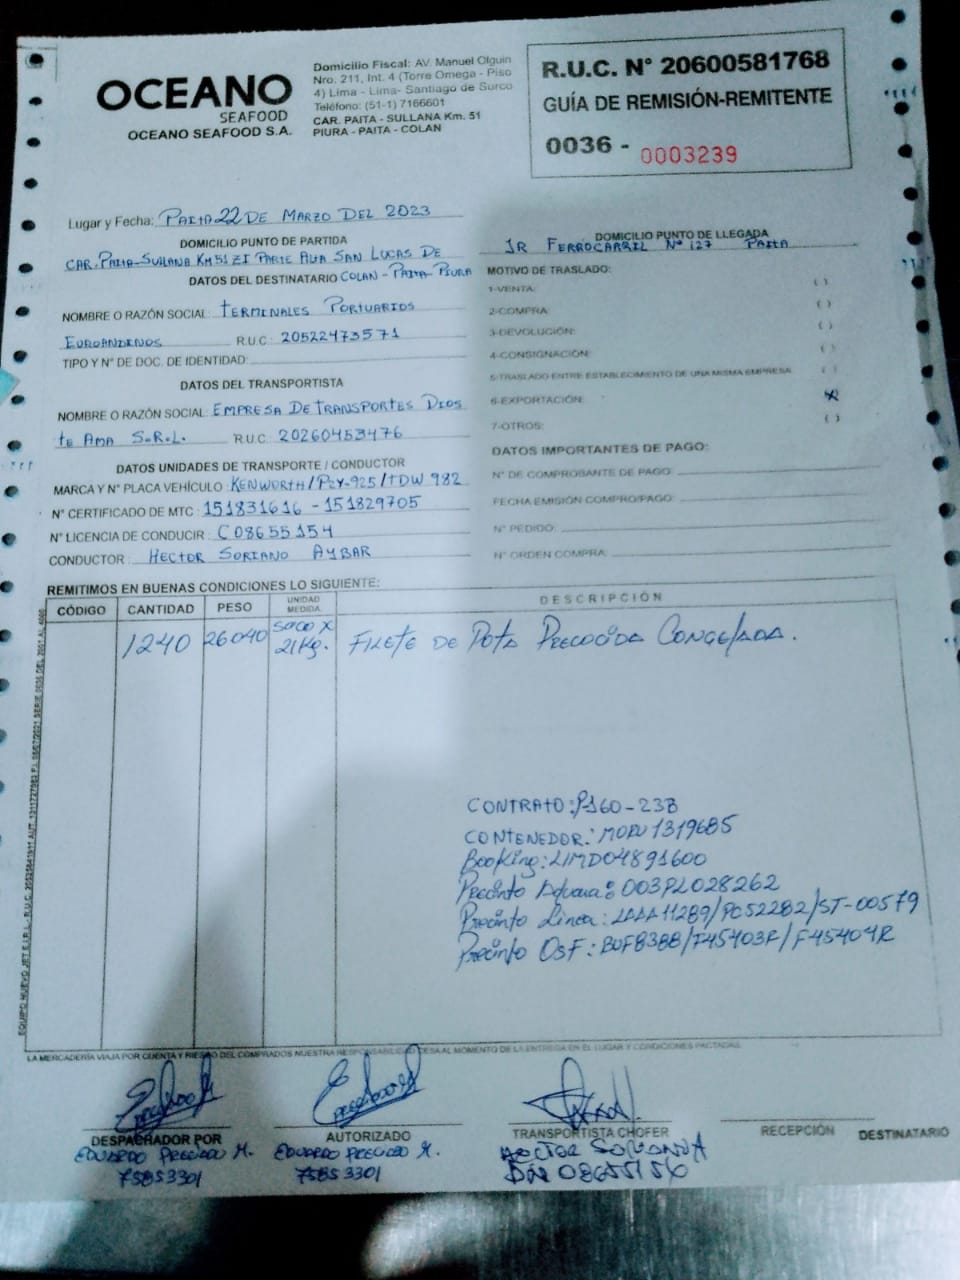 OCEANO
SEAFOOD
OCEANO SEAFOOD S.A.
Domicilio Fiscal: AV. Manuel Olguin
Nro. 211, Int. 4 (Torre Omega - Piso
4) Lima - Lima- Santiago de Surco
Teléfono: (51-1) 7166601
CAR. PAITA - SULLANA Km. 51
PIURA - PAITA - COLAN
R.U.C. N° 20600581768
GUÍA DE REMISIÓN-REMITENTE
0036 - 0003239
Lugar y Fecha: PAITA 22 DE MARZO DEL 2023
DOMICILIO PUNTO DE PARTIDA
CAR. PAITA-SULLANA KM 51 ZI PARTE ALTA SAN LUCAS DE
COLAN-PAITA-PIURA
DOMICILIO PUNTO DE LLEGADA
JR FERROCARRIL N° 127 PAITA
DATOS DEL DESTINATARIO
NOMBRE O RAZÓN SOCIAL: TERMINALES PORTUARIOS
EUROANDINOS R.U.C: 20522473571
TIPO Y N° DE DOC. DE IDENTIDAD:
DATOS DEL TRANSPORTISTA
NOMBRE O RAZÓN SOCIAL: EMPRESA DE TRANSPORTES DIOS
te AMA S.R.L. R.U.C: 20260453476
DATOS UNIDADES DE TRANSPORTE / CONDUCTOR
MARCA Y N° PLACA VEHÍCULO: KENWORTH/P2Y-925/TDW 982
N° CERTIFICADO DE MTC: 151831616 - 151829705
N° LICENCIA DE CONDUCIR: C08655154
CONDUCTOR: HECTOR SORIANO AYBAR
MOTIVO DE TRASLADO:
1-VENTA: ( )
2-COMPRA: ( )
3-DEVOLUCIÓN: ( )
4-CONSIGNACIÓN: ( )
5-TRASLADO ENTRE ESTABLECIMIENTO DE UNA MISMA EMPRESA ( )
6-EXPORTACIÓN: (X)
7-OTROS: ( )
DATOS IMPORTANTES DE PAGO:
N° DE COMPROBANTE DE PAGO:
FECHA EMISIÓN COMPRO/PAGO:
N° PEDIDO:
N° ORDEN COMPRA:
REMITIMOS EN BUENAS CONDICIONES LO SIGUIENTE:
CÓDIGO CANTIDAD PESO UNIDAD MEDIDA DESCRIPCIÓN
1240 26040 SACO X 21Kg. FILETE DE POTA PRECOCIDA CONGELADA.
CONTRATO: P160-23B
CONTENEDOR: MORU1319685
Booking: LIMD04891600
Precinto Aduana: 003PL028262
Precinto Linea: LAAA11289/PC52282/ST-00579
Precinto OSF: BUF8388/F45403R/F45404R
LA MERCADERÍA VIAJA POR CUENTA Y RIESGO DEL COMPRADOS NUESTRA RESPONSABILIDAD CESA AL MOMENTO DE LA ENTREGA EN EL LUGAR Y CONDICIONES PACTADAS.
DESPACHADOR POR
EDUARDO PRECIADO M.
75853301
AUTORIZADO
EDUARDO PRECIADO M.
75853301
TRANSPORTISTA CHOFER
HECTOR SORIANO A
RECEPCIÓN DESTINATARIO